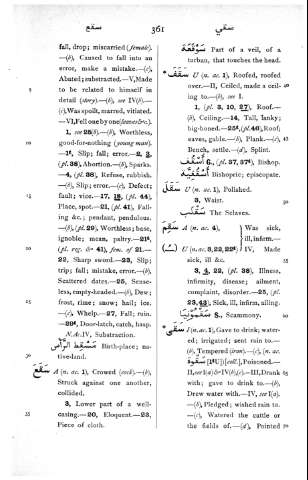 سقع 361 سقي
fall, drop; miscarried (female).
—(b), Caused to fall into an
error, make a mistake.—(c),
Abated; substracted.—V, Made
to be related to himself in
detail (story).—(b), see IV(b).—
(c), Was spoilt, marred, vitiated.
—VI, Fell one by one
1, see 25(b).—(b), Worthless,
good-for-nothing (young man).
—1⁵, Slip; fall; error.—2, 3,
(pl. 38), Abortion.—(b), Sparks.
—4, (pl. 38), Refuse, rubbish.
—(b), Slip; error.—(c), Defect;
fault; vice.—17, 18, (pl. 44),
Place, spot.—21, (pl. 41), Fall-
ing &c.; pendant, pendulous.
—(b), (pl. 29), Worthless; base,
ignoble; mean, paltry.—21⁵,
(pl. reg. &- 41), fem. of 21.—
22, Sharp sword.—23, Slip;
trip; fall; mistake, error.—(b),
Scattered dates.—25, Sense-
less, empty-headed.—(b), Dew;
frost, rime; snow; hail; ice.
—(c), Whelp.—27, Fall; ruin.
—29⁵, Door-latch, catch, hasp.
N.Ac. IV, Substraction.
مسقط الرأس Birth-place; na-
tive-land.
سقع A (n. ac. 1), Crowed (cock).—(b),
Struck against one another,
collided.
3, Lower part of a well-
casing.—20, Eloquent.—23,
Piece of cloth.
سوقعة Part of a veil, of a
turban, that touches the head.
سقف U (n. ac. 1), Roofed, roofed
over.—II, Ceiled, made a ceil-
ing to.—(b), see I.
1, (pl. 3, 10, 27), Roof.—
(b), Ceiling.—14, Tall, lanky;
big-boned.—25⁵, (pl. 46), Roof,
eaves, gable.—(b), Plank.—(c)
Bench, settle.—(d), Splint.
أسقف (pl. 37, 37⁵), Bishop.
أسقفية Bishopric; episcopate.
سقل U (n. ac. 1), Polished.
3, Waist.
سقلب The Sclaves.
سقم A (n. ac. 4), Was sick,
U (n. ac. 3, 22, 22⁵) ill, infirm.—
IV, Made
sick, ill &c.
3, 4, 22, (pl. 38), Illness,
infirmity, disease; ailment,
complaint, disorder.—25, (pl.
23, 43), Sick, ill, infirm, ailing.
سقمونيا S., Scammony.
سقى I (n. ac. 1), Gave to drink; water-
ed; irrigated; sent rain to.—
(b), Tempered (iron).—(c),
Poisoned.—
II, see I (a) & IV (b) (c).—III, Drank
with; gave to drink to.—(b),
Drew water with.—IV, see I (a).
—(b), Pledged; wished rain to.
—(c), Watered the cattle or
the fields of.—(d), Pointed